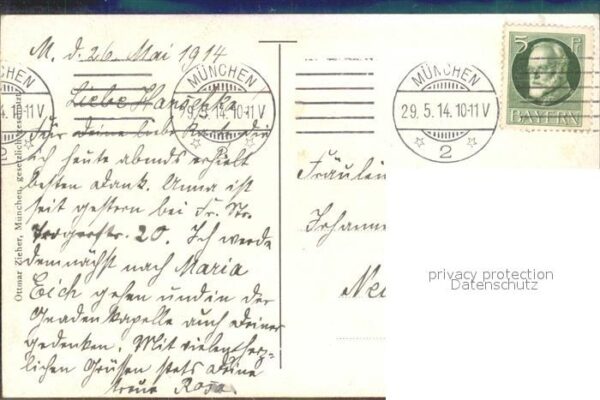 M. d. 26. Mai 1914
Liebe Hanschka!
Für deine liebe Karte die
ich heute abends erhielt
besten Dank. Anna ist
seit gestern bei Fr. Str.
Trogerstr. 20. Ich werde
demnächst nach Maria
Eich gehen und in der
Gnadenkapelle auch deiner
gedenken. Mit vielen herz-
lichen Grüssen stets deine
treue Rosa.
Ottmar Zieher, München, gesetzlich geschützt
MÜNCHEN
4.10-11V
MÜNCHEN
29.5.14.10-11V
MÜNCHEN
29.5.14.10-11V
2
5 P
BAYERN
Fräulein
Johanne
Ne
privacy protection
Datenschutz